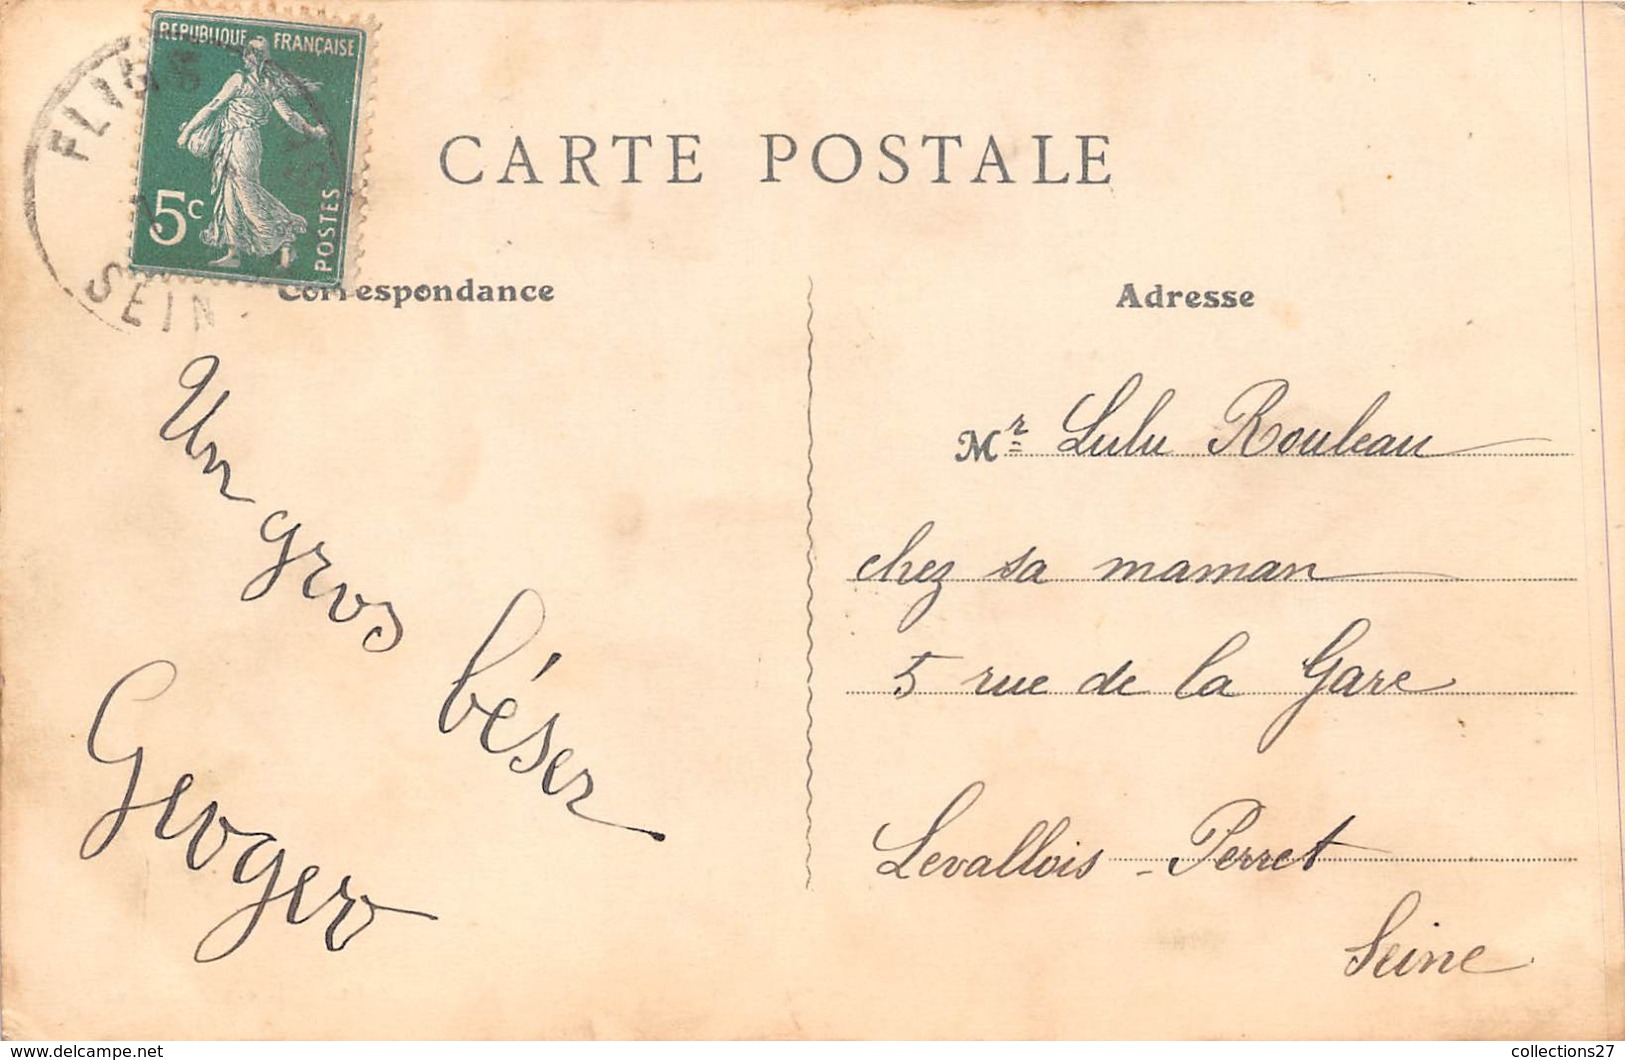 RÉPUBLIQUE FRANÇAISE
5c
POSTES
SEIN
CARTE POSTALE
Correspondance
Adresse
Un gros béser
Mr Lulu Rouleau
chez sa maman
5 rue de la Gare
Levallois-Perret
Seine
https://www.delcampe.net/collections27